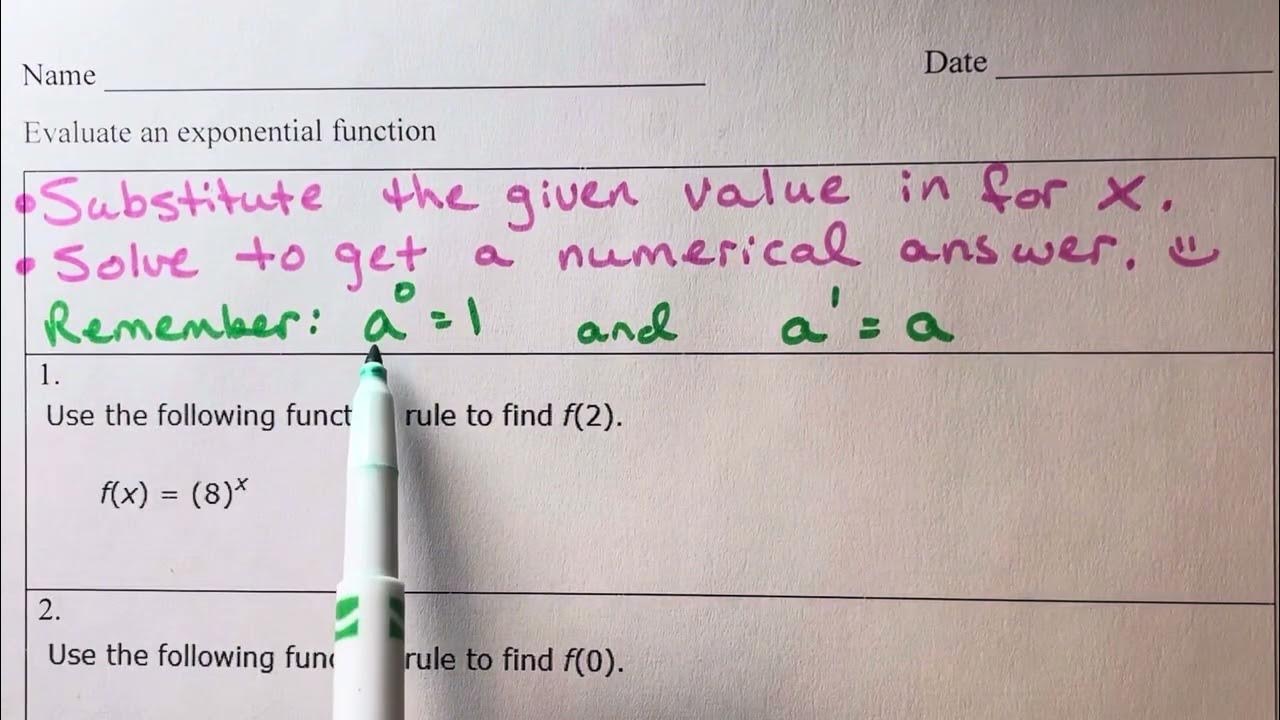 Name Date
Evaluate an exponential function
• Substitute the given value in for x.
• Solve to get a numerical answer.
Remember: a⁰ = 1 and a¹ = a
1.
Use the following funct rule to find f(2).
f(x) = (8)ˣ
2.
Use the following func rule to find f(0).